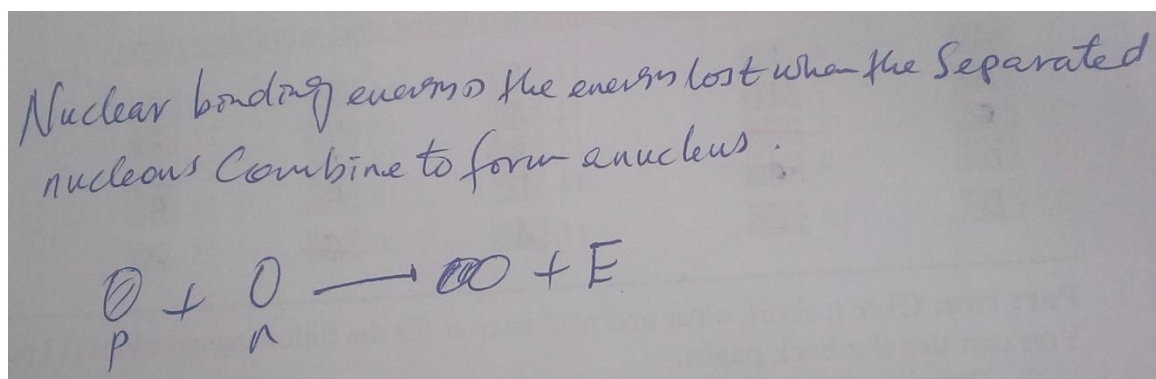 Nuclear binding energy is the energy lost when the Separated
nucleons Combine to form anucleus.
+ → + E
p n